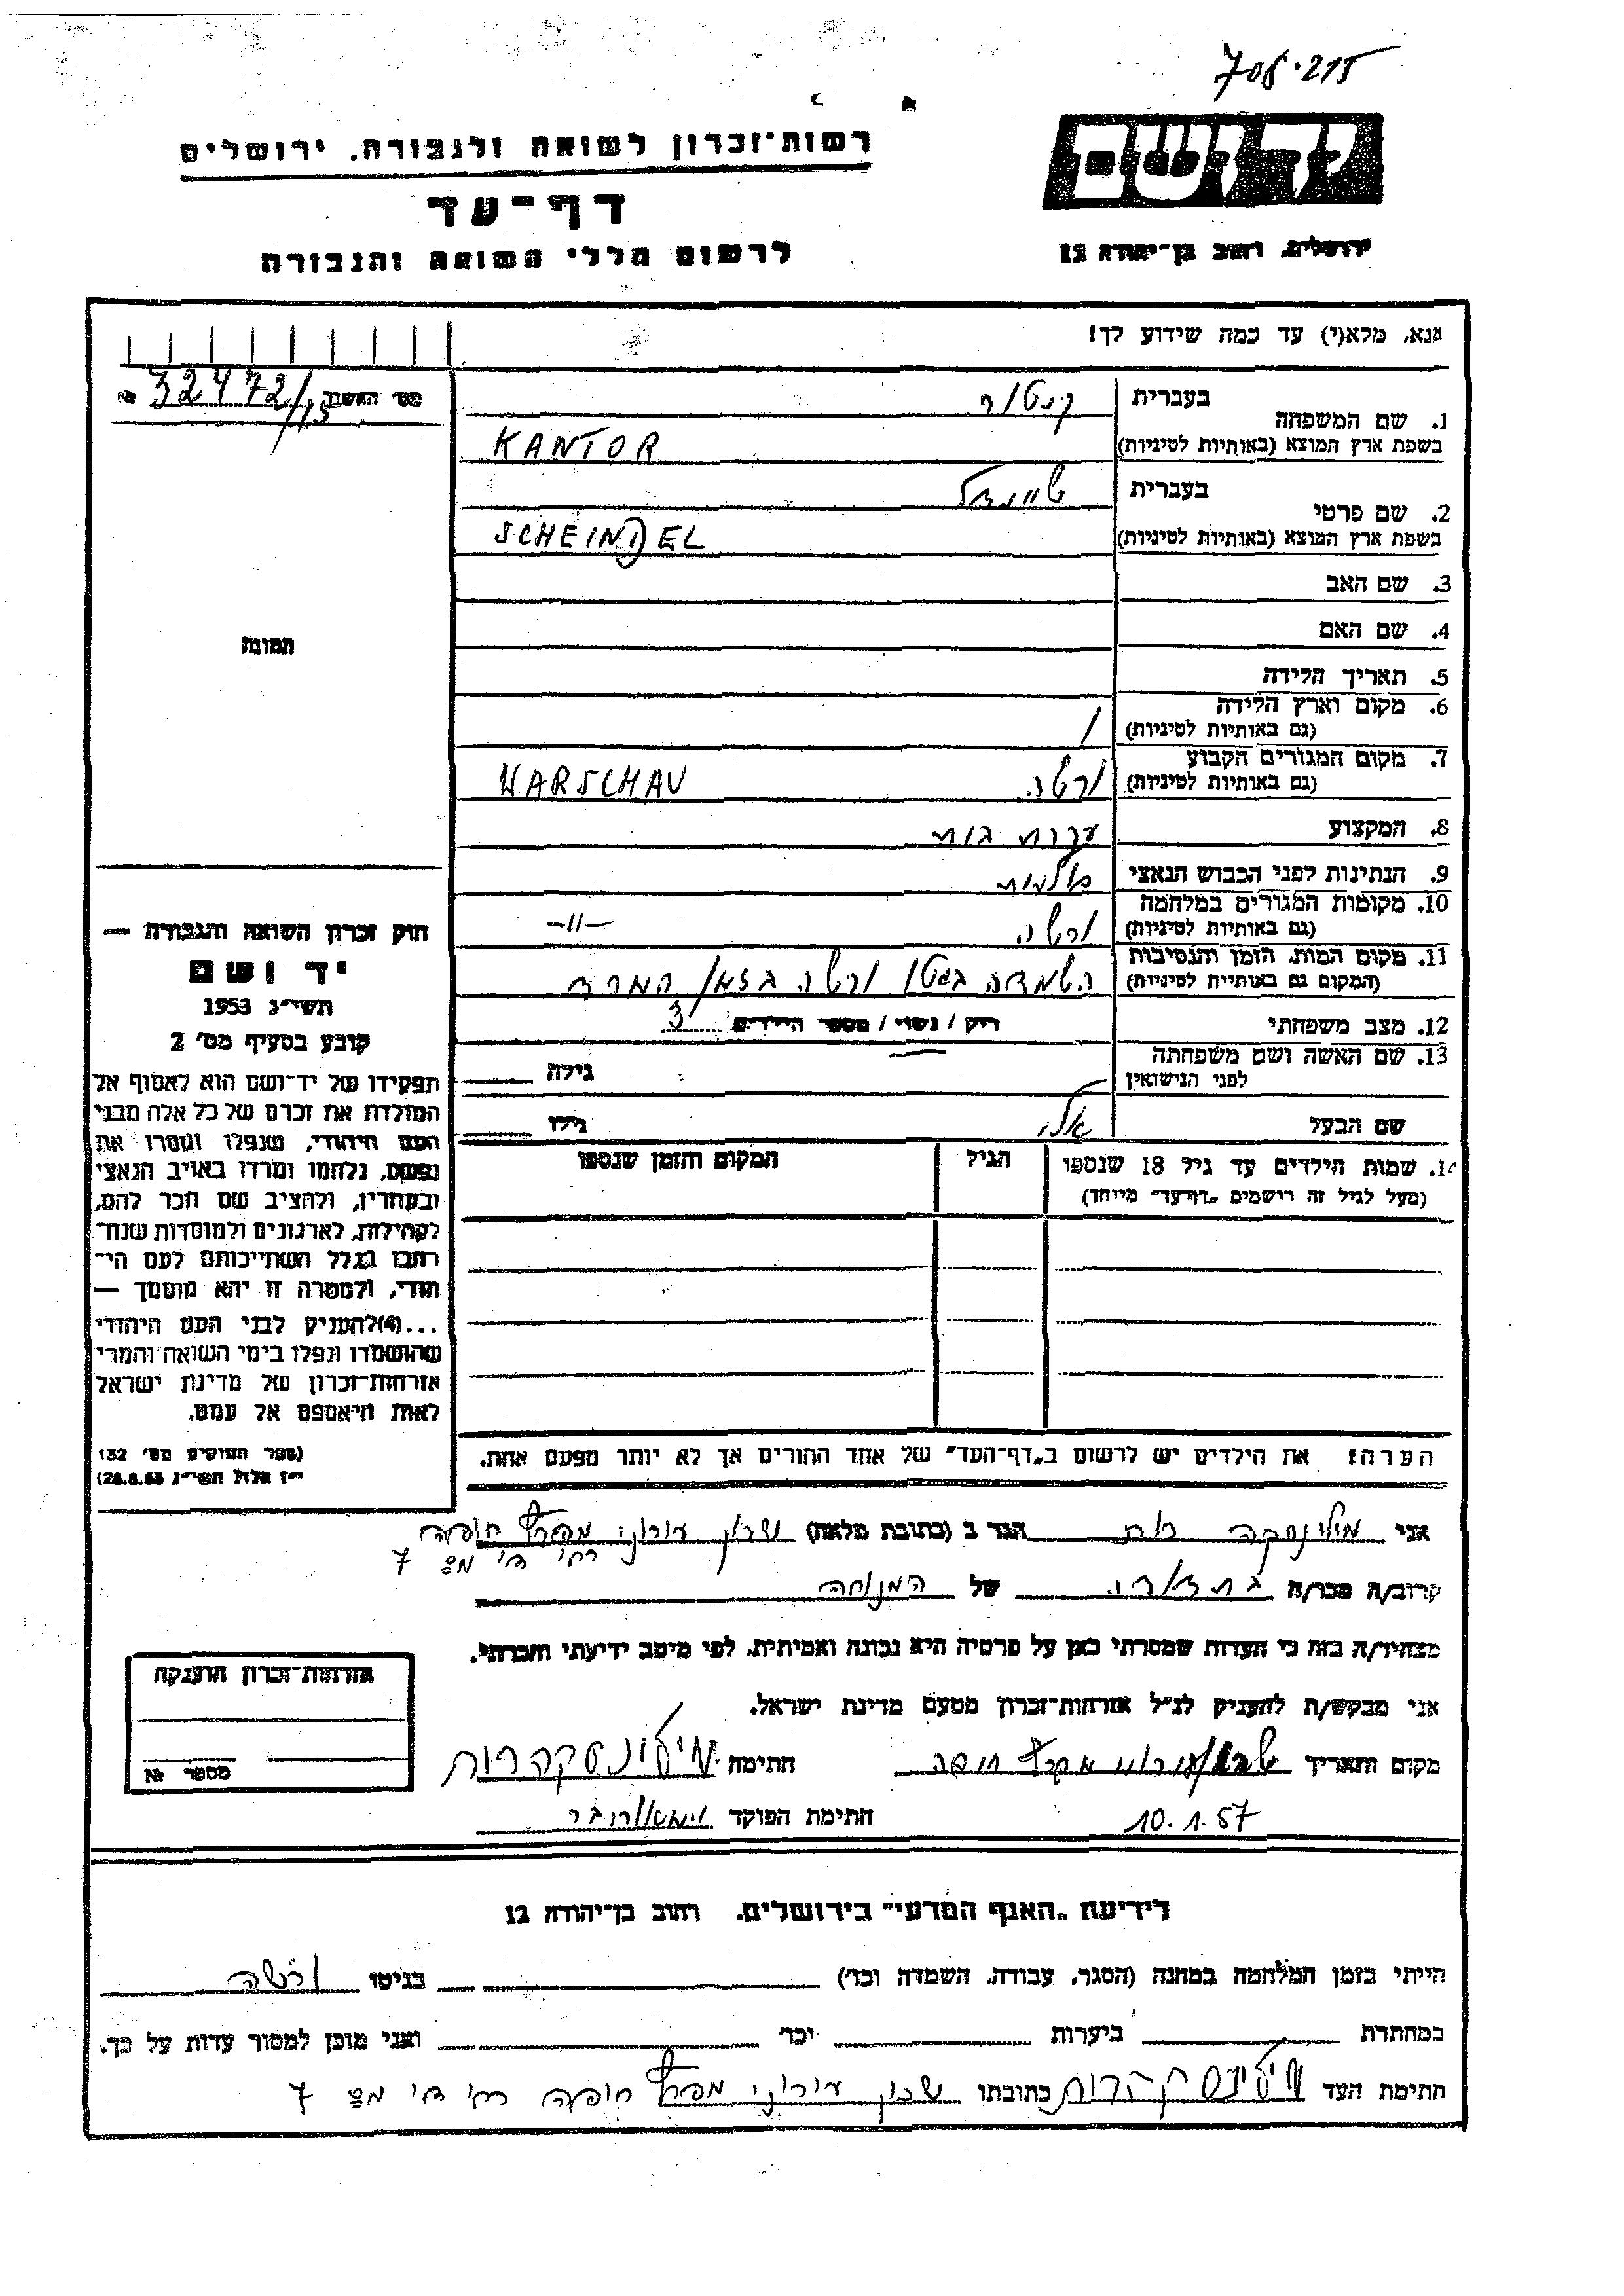 708.215
יד ושם
ירושלים, רחוב בן־יהודה 12
רשות־זכרון לשואה ולגבורה, ירושלים
דף־עד
לרשום חללי השואה והגבורה
אנא, מלא(י) עד כמה שידוע לך!
מס׳ האשנב 32472/15 №
1. שם המשפחה בעברית קנטור
בשפת ארץ המוצא (באותיות לטיניות) KANTOR
2. שם פרטי בעברית שיינדל
בשפת ארץ המוצא (באותיות לטיניות) SCHEINDEL
3. שם האב
4. שם האם
תמונה
5. תאריך הלידה
6. מקום וארץ הלידה
(גם באותיות לטיניות) /
7. מקום המגורים הקבוע
(גם באותיות לטיניות) ורשה WARSCHAU
8. המקצוע עקרת בית
9. הנתינות לפני הכבוש הנאצי פולנית
10. מקומות המגורים במלחמה
(גם באותיות לטיניות) ורשה -11-
11. מקום המות, הזמן והנסיבות
(המקום גם באותיות לטיניות) הושמדה בגטו ורשה בזמן המרד
12. מצב משפחתי ריק / נשוי / מספר הילדים 3
13. שם האשה ושם משפחתה
לפני הנישואין גילה
שם הבעל גילו
14. שמות הילדים עד גיל 18 שנספו הגיל המקום והזמן שנספו
(מעל לגיל זה רישמים „דף־עד״ מיוחד)
חוק זכרון השואה והגבורה —
יד ושם
תשי״ג 1953
קובע בסעיף מס׳ 2
תפקידו של יד־ושם הוא לאסוף אל
המולדת את זכרם של כל אלה מבני
העם היהודי, שנפלו ומסרו את
נפשם, נלחמו ומרדו באויב הנאצי
ובעוזריו, ולהציב שם וזכר להם,
לקהילות, לארגונים ולמוסדות שנח־
רבו בגלל השתייכותם לעם הי־
הודי, ולמטרה זו יהא מוסמך —
...(4)להעניק לבני העם היהודי
שהושמדו ונפלו בימי השואה והמרי
אזרחות־זכרון של מדינת ישראל
לאות היאספם אל עמם.
(ספר החוקים מס׳ 132
י״ז אלול תשי״ג 28.8.53)
הערה! את הילדים יש לרשום ב„דף־העד״ של אחד ההורים אך לא יותר מפעם אחת.
אני מילינסקה רות הגר ב (כתובת מלאה) שכון עירוני מפרץ חיפה
7
קרוב/ה מכר/ה בת דודה של המנוחה
מצהיר/ה בזה כי העדות שמסרתי כאן על פרטיה היא נכונה ואמיתית, לפי מיטב ידיעתי והכרתי.
אני מבקש/ת להעניק לנ״ל אזרחות־זכרון מטעם מדינת ישראל.
מקום ותאריך שכון עירוני מפרץ חיפה חתימה מילינסקה רות
10.1.57 חתימת הפוקד
אזרחות־זכרון הוענקה
מספר №
לידיעת „האגף המדעי״ בירושלים, רחוב בן־יהודה 12
הייתי בזמן המלחמה במחנה (הסגר, עבודה, השמדה וכד׳) בגיטו ורשה
במחתרת ביערות וכד׳ ואני מוכן למסור עדות על כך.
חתימת העד מילינסקה רות כתובתו שכון עירוני מפרץ חיפה 7